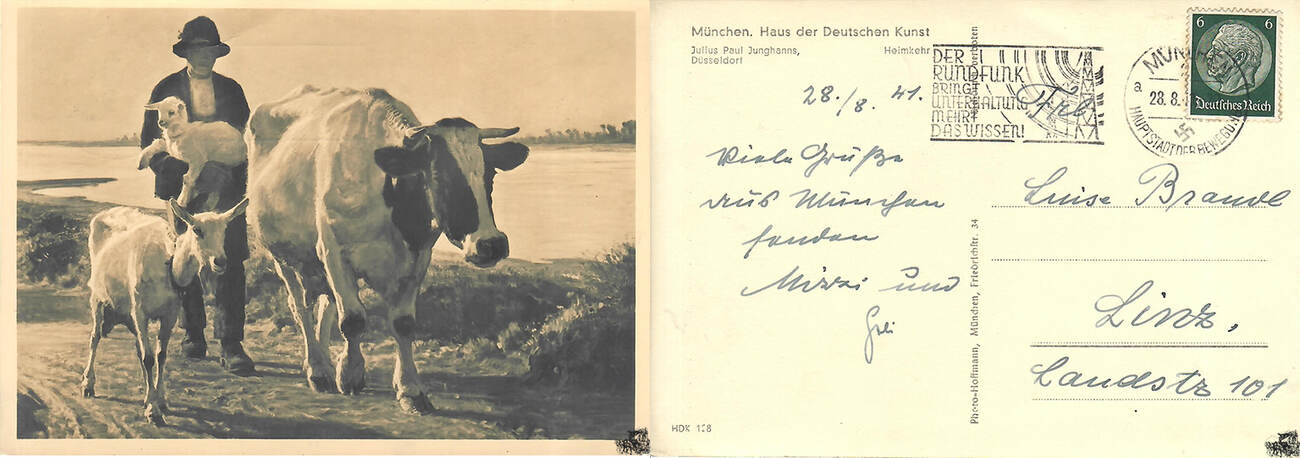 München. Haus der Deutschen Kunst
Julius Paul Junghanns, Heimkehr
Düsseldorf
verboten
DER
RUNDFUNK
BRINGT
UNTERHALTUNG
MEHRT
DAS WISSEN!
MÜNCHEN
a
28.8.
HAUPTSTADT DER BEWEGUNG
6 6
Deutsches Reich
28./8. 41.
Viele Grüße
aus München
senden
Mizzi und
Luise Brandl
Linz,
Landstz 101
Photo-Hoffmann, München, Friedrichstr. 34
HDK 128